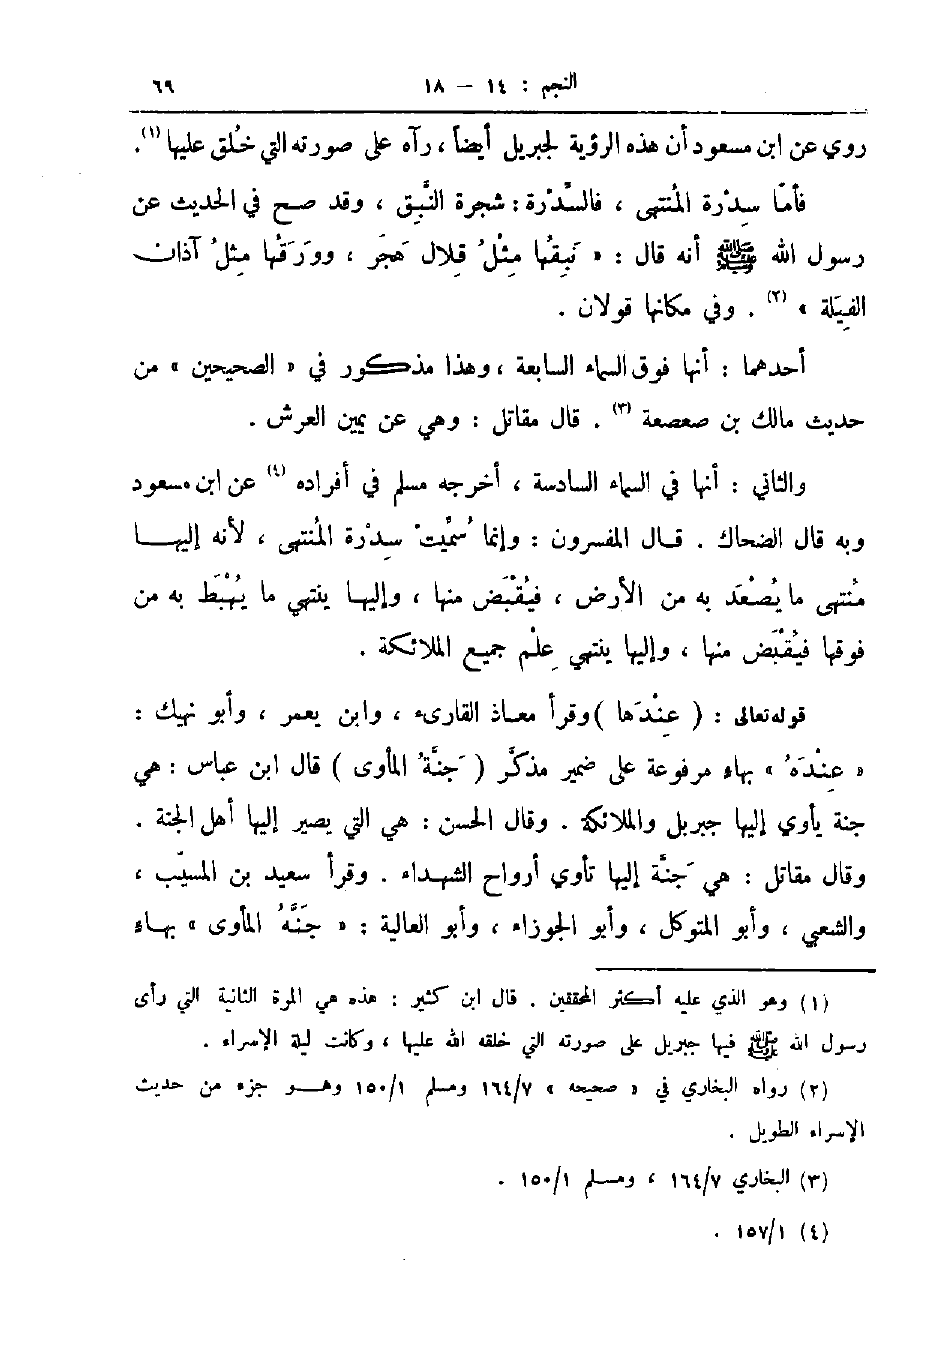 النجم : ١٤ – ١٨ ٦٩
روي عن ابن مسعود أن هذه الرؤية لجبريل أيضاً ، رآه على صورته التي خُلق عليها (١).
فأمّا سِدْرة المُنتهى ، فالسِّدْرة : شجرة النَّبِق ، وقد صح في الحديث عن
رسول الله ﷺ أنه قال : « نَبِقُها مِثْلُ قِلال هَجَر ، ووَرَقُها مِثلُ آذان
الفِيَلة » (٢) . وفي مكانها قولان .
أحدهما : أنها فوق السماء السابعة ، وهذا مذكور في « الصحيحين » من
حديث مالك بن صعصعة (٣) . قال مقاتل : وهي عن يمين العرش .
والثاني : أنها في السماء السادسة ، أخرجه مسلم في أفراده (٤) عن ابن مسعود
وبه قال الضحاك . قال المفسرون : وإنما سُمِّيتْ سِدْرة المُنتهى ، لأنه إليها
مُنتهى ما يُصْعَد به من الأرض ، فيُقْبَض منها ، وإليها ينتهي ما يُهْبَط به من
فوقها فيُقْبَض منها ، وإليها ينتهي عِلْم جميع الملائكة .
قوله تعالى : ( عِنْدَها ) وقرأ معاذ القارىء ، وابن يعمر ، وأبو نهيك :
« عِنْدَهُ » بهاء مرفوعة على ضمير مذكَّر ( جَنَّةُ المأوى ) قال ابن عباس : هي
جنة يأوي إليها جبريل والملائكة . وقال الحسن : هي التي يصير إليها أهل الجنة .
وقال مقاتل : هي جَنَّة إليها تأوي أرواح الشهداء . وقرأ سعيد بن المسيّب ،
والشعبي ، وأبو المتوكل ، وأبو الجوزاء ، وأبو العالية : « جَنَّهُ المأوى » بهاء
(١) وهو الذي عليه أكثر المحققين . قال ابن كثير : هذه هي المرة الثانية التي رأى
رسول الله ﷺ فيها جبريل على صورته التي خلقه الله عليها ، وكانت ليلة الإسراء .
(٢) رواه البخاري في « صحيحه » ١٦٤/٧ ومسلم ١٥٠/١ وهو جزء من حديث
الإسراء الطويل .
(٣) البخاري ١٦٤/٧ ، ومسلم ١٥٠/١ .
(٤) ١٥٧/١ .